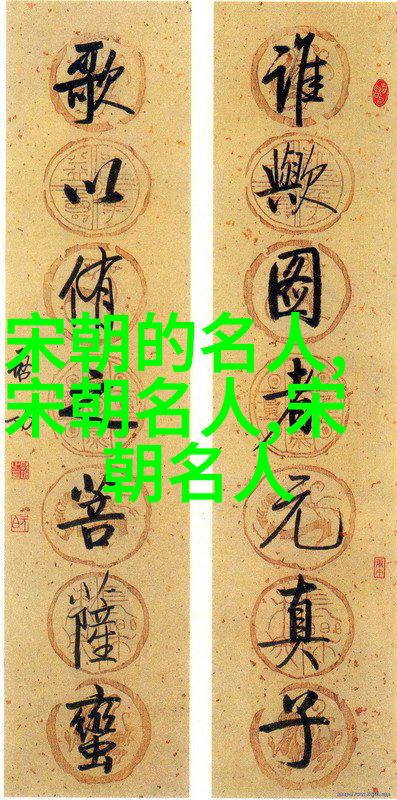 谁歟图者元真子
歌以侑之菩薩蠻
宋朝的名人,
宋朝名人,宋
朝名人